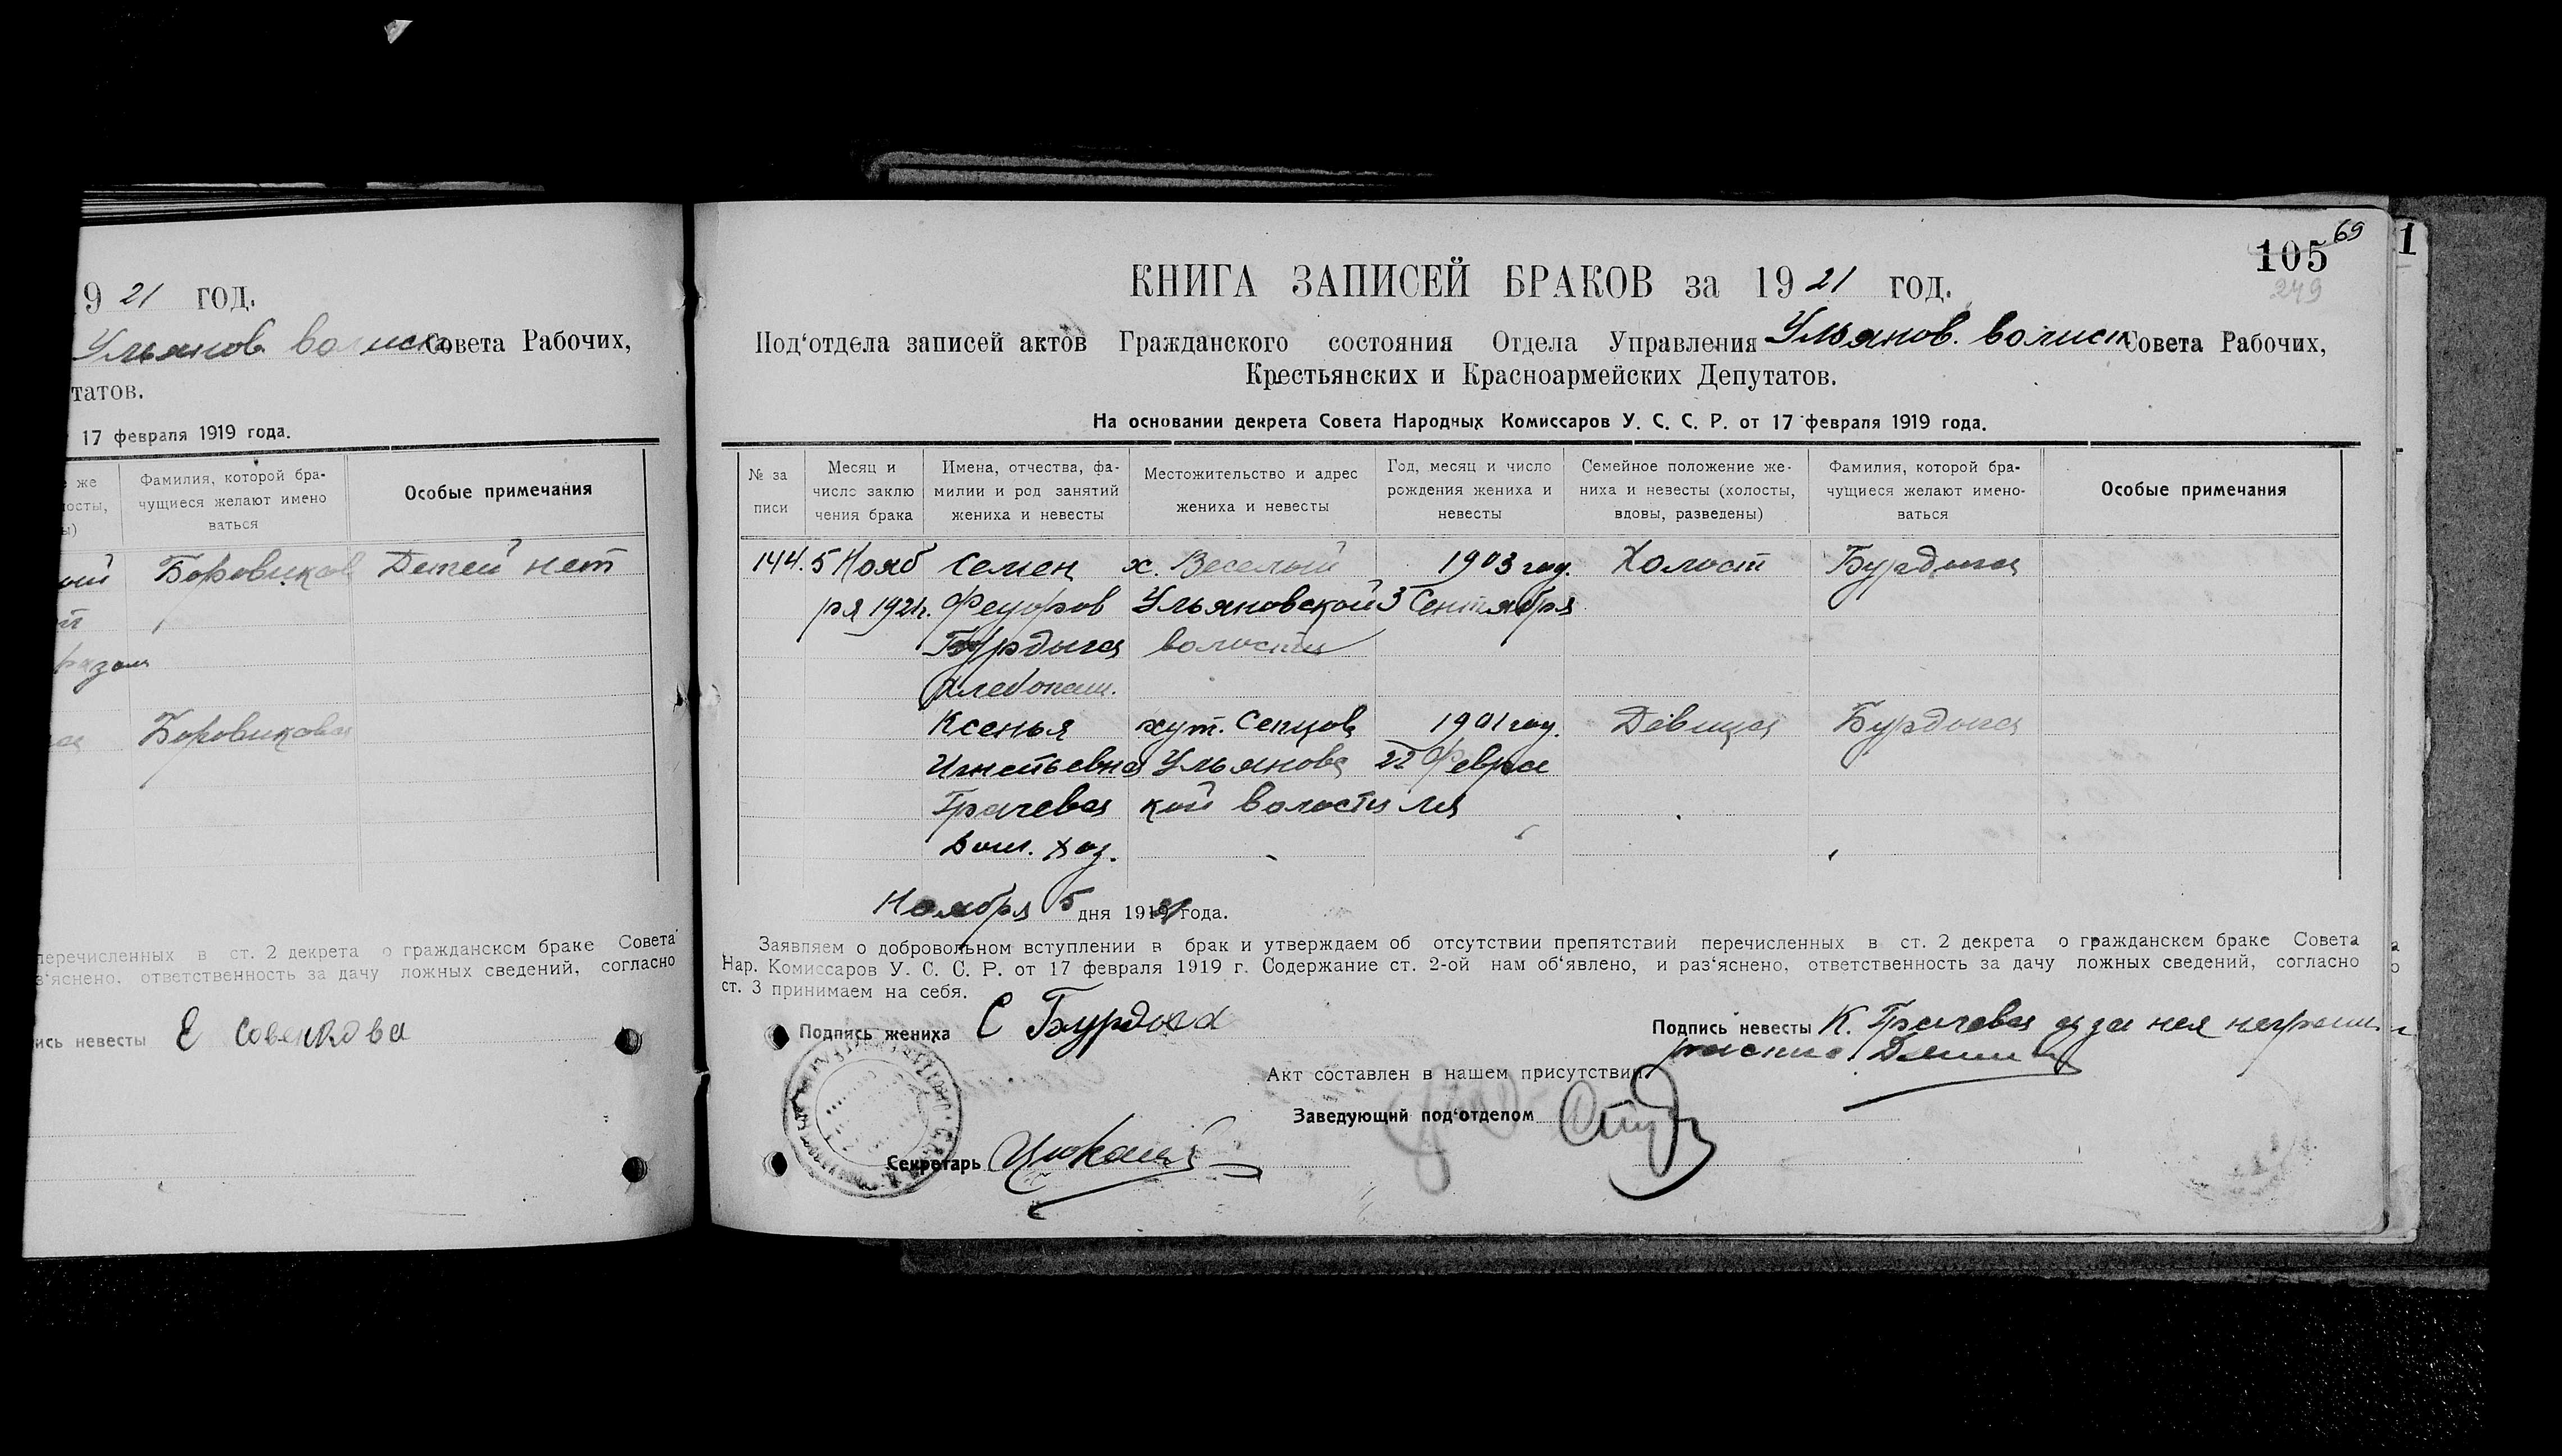 9 21 год.
Ульянов. волиск Совета Рабочих,
татов.
17 февраля 1919 года.
же
лосты,
ы)
Фамилия, которой бра-
чущиеся желают имено
ваться
Особые примечания
Боровиков Детей нет
Боровикова
перечисленных в ст. 2 декрета о гражданском браке Совета
з‘яснено, ответственность за дачу ложных сведений, согласно
ись невесты Е Совенкова
105 69
249
1
КНИГА ЗАПИСЕЙ БРАКОВ за 19 21 год.
Под‘отдела записей актов Гражданского состояния Отдела Управления Ульянов. волиск Совета Рабочих,
Крестьянских и Красноармейских Депутатов.
На основании декрета Совета Народных Комиссаров У. С. С. Р. от 17 февраля 1919 года.
№ за
писи
Месяц и
число заклю
чения брака
Имена, отчества, фа-
милии и род занятий
жениха и невесты
Местожительство и адрес
жениха и невесты
Год, месяц и число
рождения жениха и
невесты
Семейное положение же-
ниха и невесты (холосты,
вдовы, разведены)
Фамилия, которой бра-
чущиеся желают имено-
ваться
Особые примечания
144. 5 Нояб Семен х. Веселый 1903 год. Холост Бурдыга
ря 1921г. Федоров Ульяновской 3 Сентября
Бурдыга волости
хлебопаш.
Ксенья хут. Сепцов 1901 год. Девица Бурдыга
Игнатьевна Ульяновс 22 Февра
Грачева кой волости ля
Дом. хоз.
Ноября 5 дня 1921 года.
Заявляем о добровольном вступлении в брак и утверждаем об отсутствии препятствий перечисленных в ст. 2 декрета о гражданском браке Совета
Нар. Комиссаров У. С. С. Р. от 17 февраля 1919 г. Содержание ст. 2-ой нам об‘явлено, и раз‘яснено, ответственность за дачу ложных сведений, согласно
ст. 3 принимаем на себя.
Подпись жениха С Бурдыга
Подпись невесты К. Грачева а за нея неграм.
Акт составлен в нашем присутствии
Заведующий под‘отделом
Секретарь